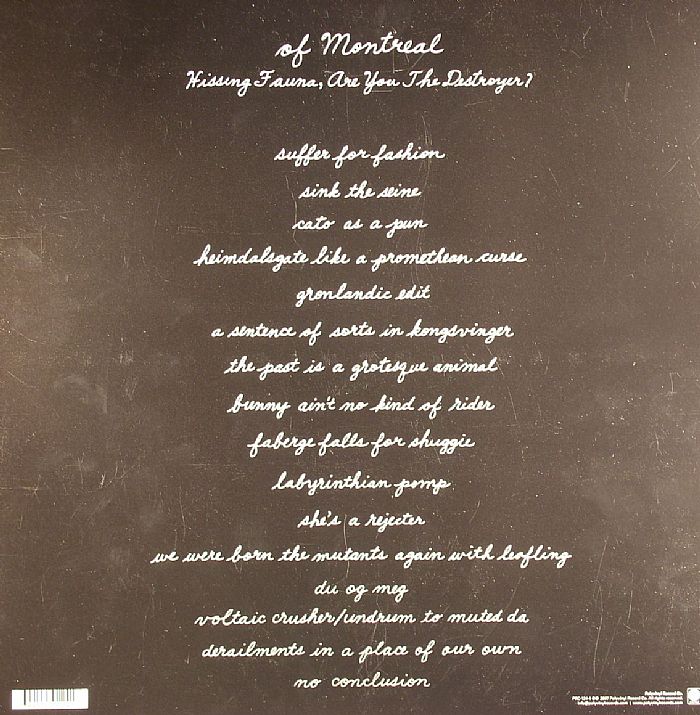 of Montreal
Hissing Fauna, Are You The Destroyer?
suffer for fashion
sink the seine
cato as a pun
heimdalsgate like a promethean curse
gronlandic edit
a sentence of sorts in kongsvinger
the past is a grotesque animal
bunny ain't no kind of rider
faberge falls for shuggie
labyrinthian pomp
she's a rejecter
we were born the mutants again with leafling
du og meg
voltaic crusher/undrum to muted da
derailments in a place of our own
no conclusion
Polyvinyl Record Co.
2007 Polyvinyl Record Co. All rights reserved.
info@polyvinylrecords.com | www.polyvinylrecords.com